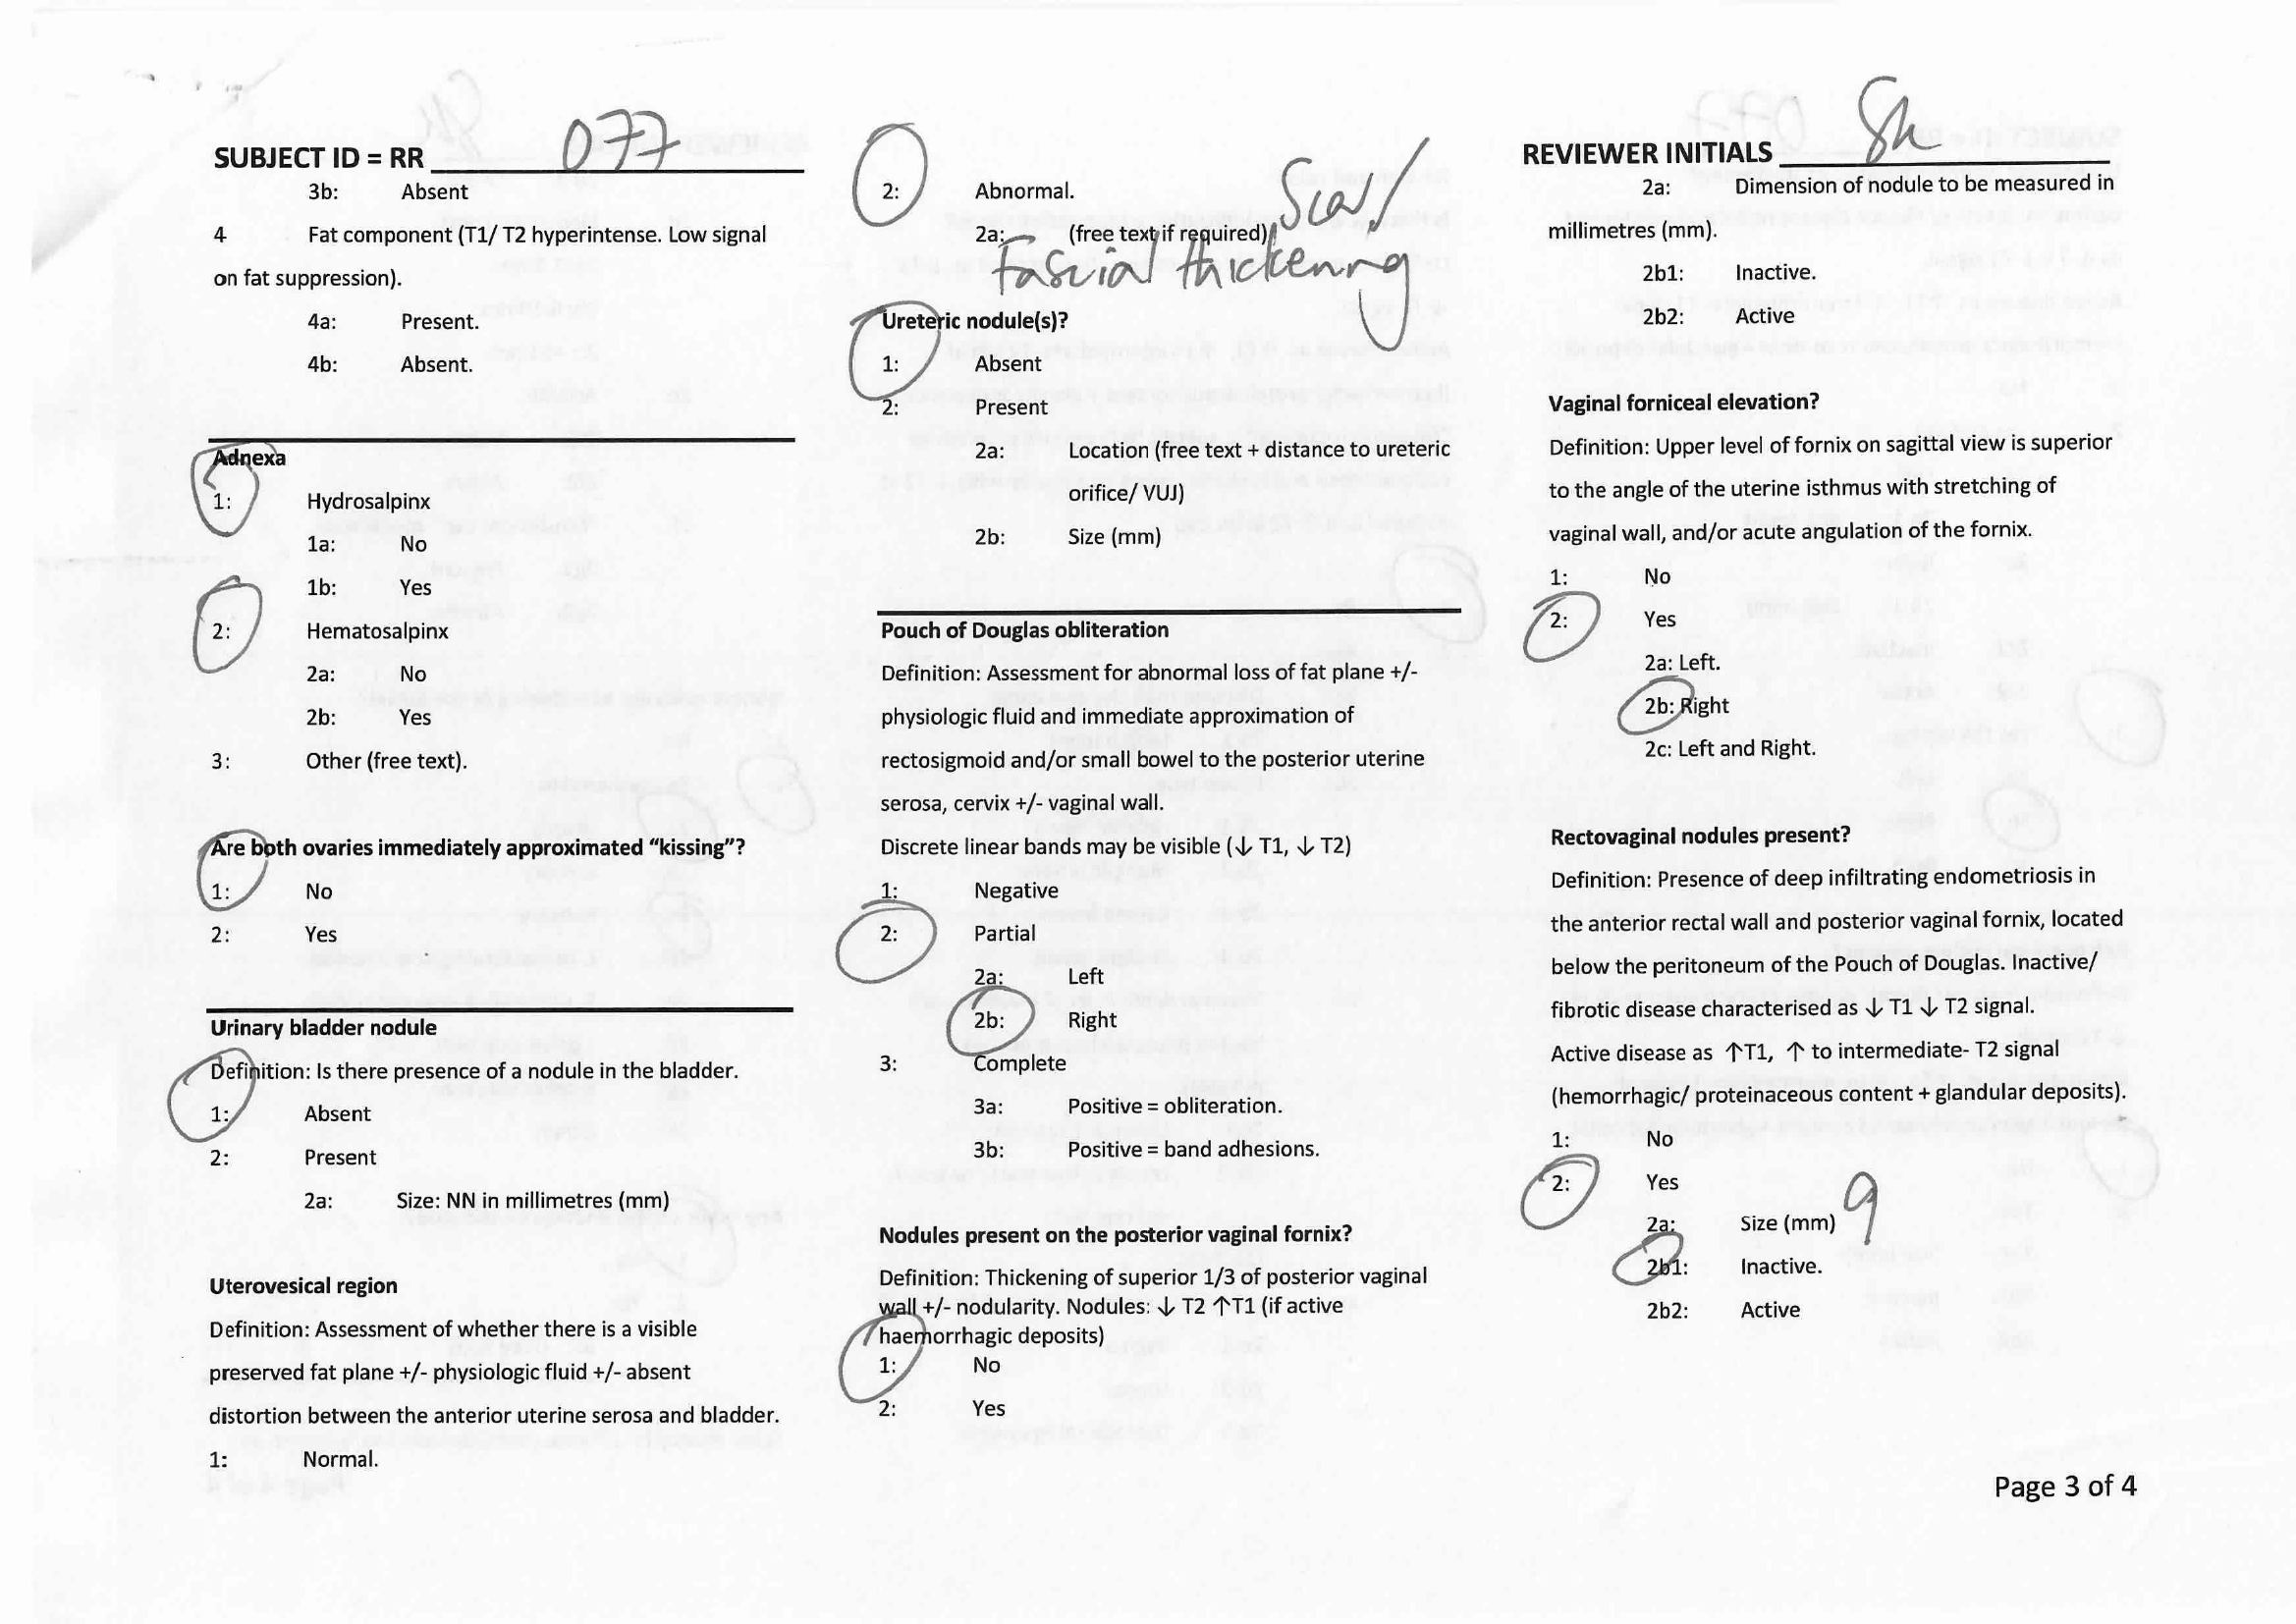 SUBJECT ID = RR 077
3b: Absent
4 Fat component (T1/ T2 hyperintense. Low signal
on fat suppression).
4a: Present.
4b: Absent.
Adnexa
1: Hydrosalpinx
1a: No
1b: Yes
2: Hematosalpinx
2a: No
2b: Yes
3: Other (free text).
Are both ovaries immediately approximated “kissing”?
1: No
2: Yes
Urinary bladder nodule
Definition: Is there presence of a nodule in the bladder.
1: Absent
2: Present
2a: Size: NN in millimetres (mm)
Uterovesical region
Definition: Assessment of whether there is a visible
preserved fat plane +/- physiologic fluid +/- absent
distortion between the anterior uterine serosa and bladder.
1: Normal.
2: Abnormal.
2a: (free text if required) Scar/
Fascial thickening
Ureteric nodule(s)?
1: Absent
2: Present
2a: Location (free text + distance to ureteric
orifice/ VUJ)
2b: Size (mm)
Pouch of Douglas obliteration
Definition: Assessment for abnormal loss of fat plane +/-
physiologic fluid and immediate approximation of
rectosigmoid and/or small bowel to the posterior uterine
serosa, cervix +/- vaginal wall.
Discrete linear bands may be visible (↓ T1, ↓ T2)
1: Negative
2: Partial
2a: Left
2b: Right
3: Complete
3a: Positive = obliteration.
3b: Positive = band adhesions.
Nodules present on the posterior vaginal fornix?
Definition: Thickening of superior 1/3 of posterior vaginal
wall +/- nodularity. Nodules: ↓ T2 ↑T1 (if active
haemorrhagic deposits)
1: No
2: Yes
REVIEWER INITIALS
2a: Dimension of nodule to be measured in
millimetres (mm).
2b1: Inactive.
2b2: Active
Vaginal forniceal elevation?
Definition: Upper level of fornix on sagittal view is superior
to the angle of the uterine isthmus with stretching of
vaginal wall, and/or acute angulation of the fornix.
1: No
2: Yes
2a: Left.
2b: Right
2c: Left and Right.
Rectovaginal nodules present?
Definition: Presence of deep infiltrating endometriosis in
the anterior rectal wall and posterior vaginal fornix, located
below the peritoneum of the Pouch of Douglas. Inactive/
fibrotic disease characterised as ↓ T1 ↓ T2 signal.
Active disease as ↑T1, ↑ to intermediate- T2 signal
(hemorrhagic/ proteinaceous content + glandular deposits).
1: No
2: Yes
2a: Size (mm) 9
2b1: Inactive.
2b2: Active
Page 3 of 4